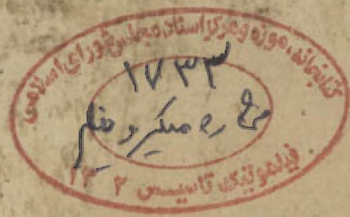 کتابخانه، موزه و مرکز اسناد مجلس شورای اسلامی
۱۷۳۳
شماره میکروفیلم
تاسیس ۱۳۰۲